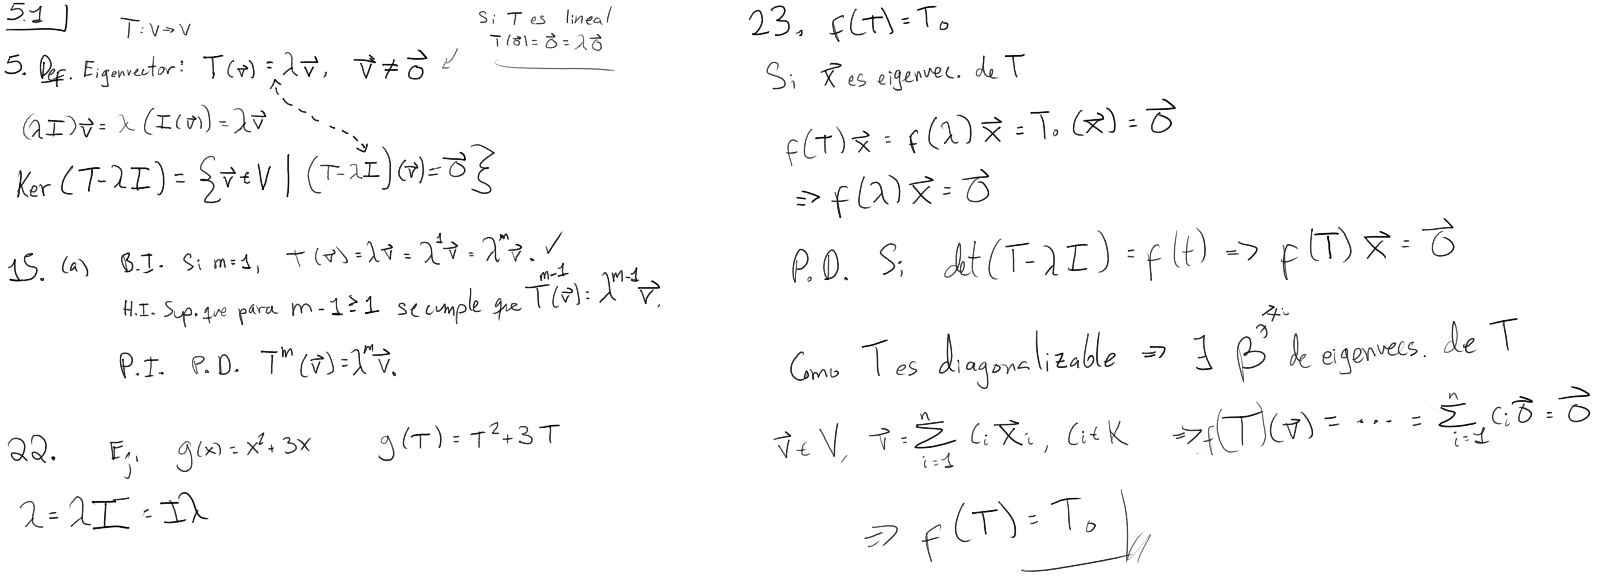 5.1
T: V→V
Si T es lineal
T(0⃗)=0⃗=λ0⃗
5. Def. Eigenvector: T(v⃗)=λv⃗, v⃗≠0⃗
(λI)v⃗=λ(I(v⃗))=λv⃗
Ker(T-λI)={v⃗∈V | (T-λI)(v⃗)=0⃗}
15. (a) B.I. Si m=1, T(v⃗)=λv⃗=λ¹v⃗=λᵐv⃗. ✓
H.I. Sup. que para m-1≥1 se cumple que Tᵐ⁻¹(v⃗)=λᵐ⁻¹v⃗.
P.I. P.D. Tᵐ(v⃗)=λᵐv⃗.
22. Ej. g(x)=x²+3x g(T)=T²+3T
λ=λI=Iλ
23. f(T)=T₀
Si x⃗ es eigenvec. de T
f(T)x⃗=f(λ)x⃗=T₀(x⃗)=0⃗
⇒ f(λ)x⃗=0⃗
P.D. Si det(T-λI)=f(t) ⇒ f(T)x⃗=0⃗
Como T es diagonalizable ⇒ ∃ β de eigenvecs. de T
v⃗∈V, v⃗=∑ⁿᵢ₌₁ cᵢx⃗ᵢ, cᵢ∈K ⇒f(T)(v⃗)=....=∑ⁿᵢ₌₁ cᵢ0⃗=0⃗
⇒ f(T)=T₀